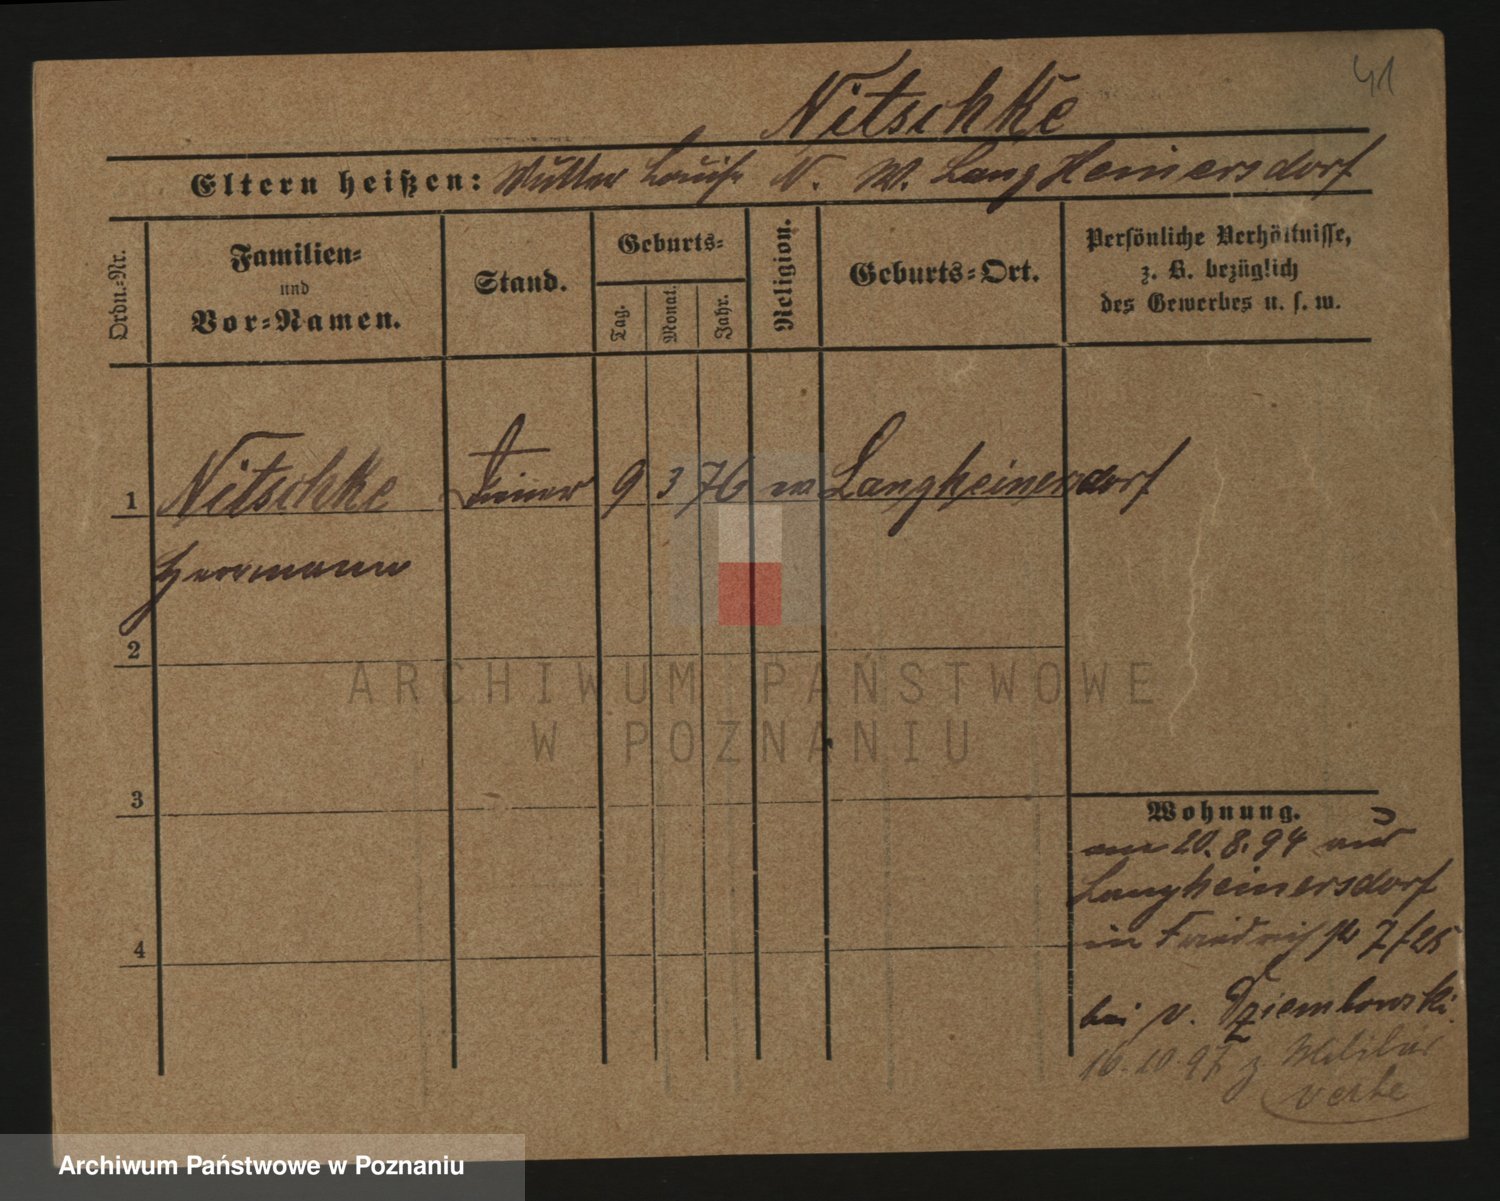 41
Nitschke
Eltern heißen: Mutter Louise N. W. Langheinersdorf
Ordn.-Nr.
Familien-
und
Vor-Namen.
Stand.
Geburts-
Tag.
Monat.
Jahr.
Religion.
Geburts-Ort.
Persönliche Verhältnisse,
z. B. bezüglich
des Gewerbes u. s. w.
1 Nitschke Diener 9 3 76 ev Langheinersdorf
Herrmann
2
3
4
Wohnung.
am 20. 8. 94 aus
Langheinersdorf
in Friedrichstr
bei v. Dziembowski
16.10.97 z Militär
ARCHIWUM PAŃSTWOWE
W POZNANIU
Archiwum Państwowe w Poznaniu